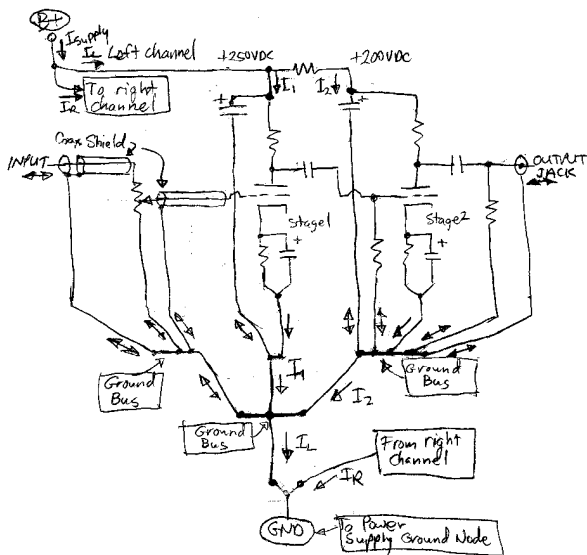 B+
Isupply
IL Left channel
+250VDC
+200VDC
To right
channel
IR
I1
I2
Coax Shield
INPUT
OUTPUT
JACK
+
+
+
+
Stage1
Stage2
Ground
Bus
I1
I2
Ground
Bus
Ground
Bus
IL
From right
channel
IR
GND
To Power
Supply Ground Node